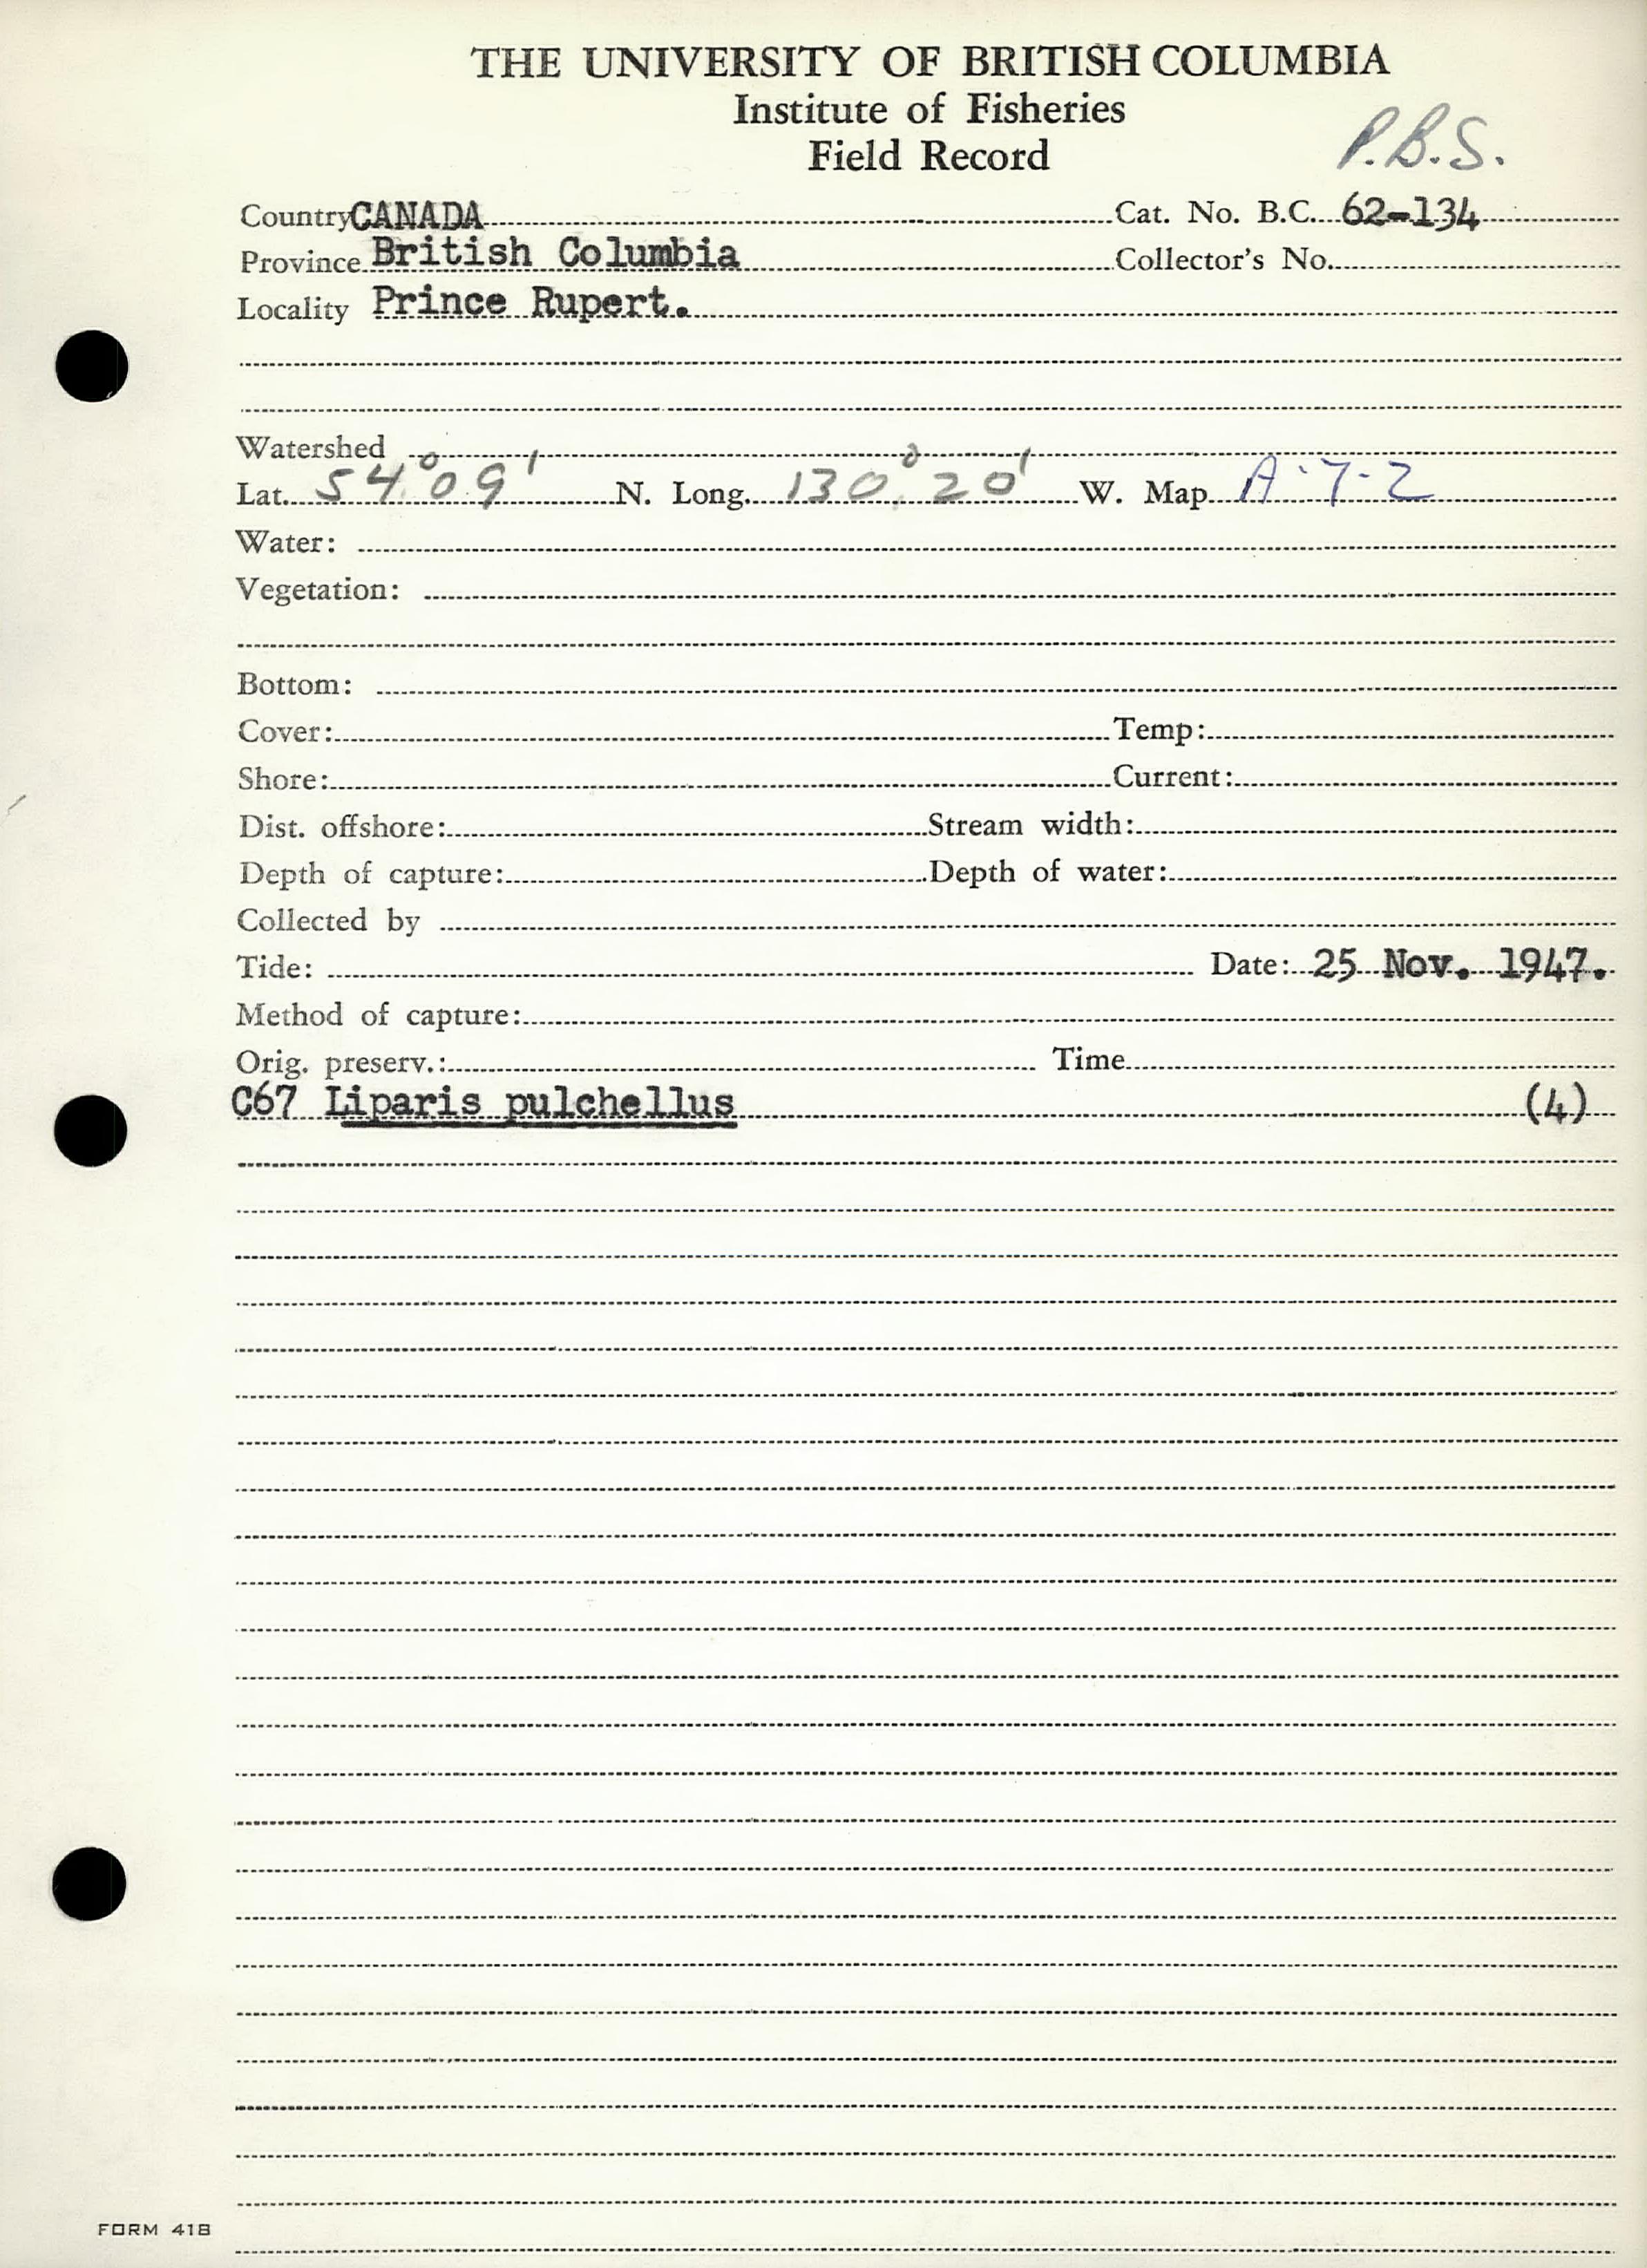 THE UNIVERSITY OF BRITISH COLUMBIA
Institute of Fisheries
Field Record
P.B.S.
Country CANADA Cat. No. B.C. 62-134
Province British Columbia Collector's No.
Locality Prince Rupert.
Watershed
Lat. 54° 09' N. Long. 130° 20' W. Map A-7-2
Water:
Vegetation:
Bottom:
Cover: Temp:
Shore: Current:
Dist. offshore: Stream width:
Depth of capture: Depth of water:
Collected by
Tide: Date: 25 Nov. 1947.
Method of capture:
Orig. preserv.: Time
C67 Liparis pulchellus (4)
FORM 41B